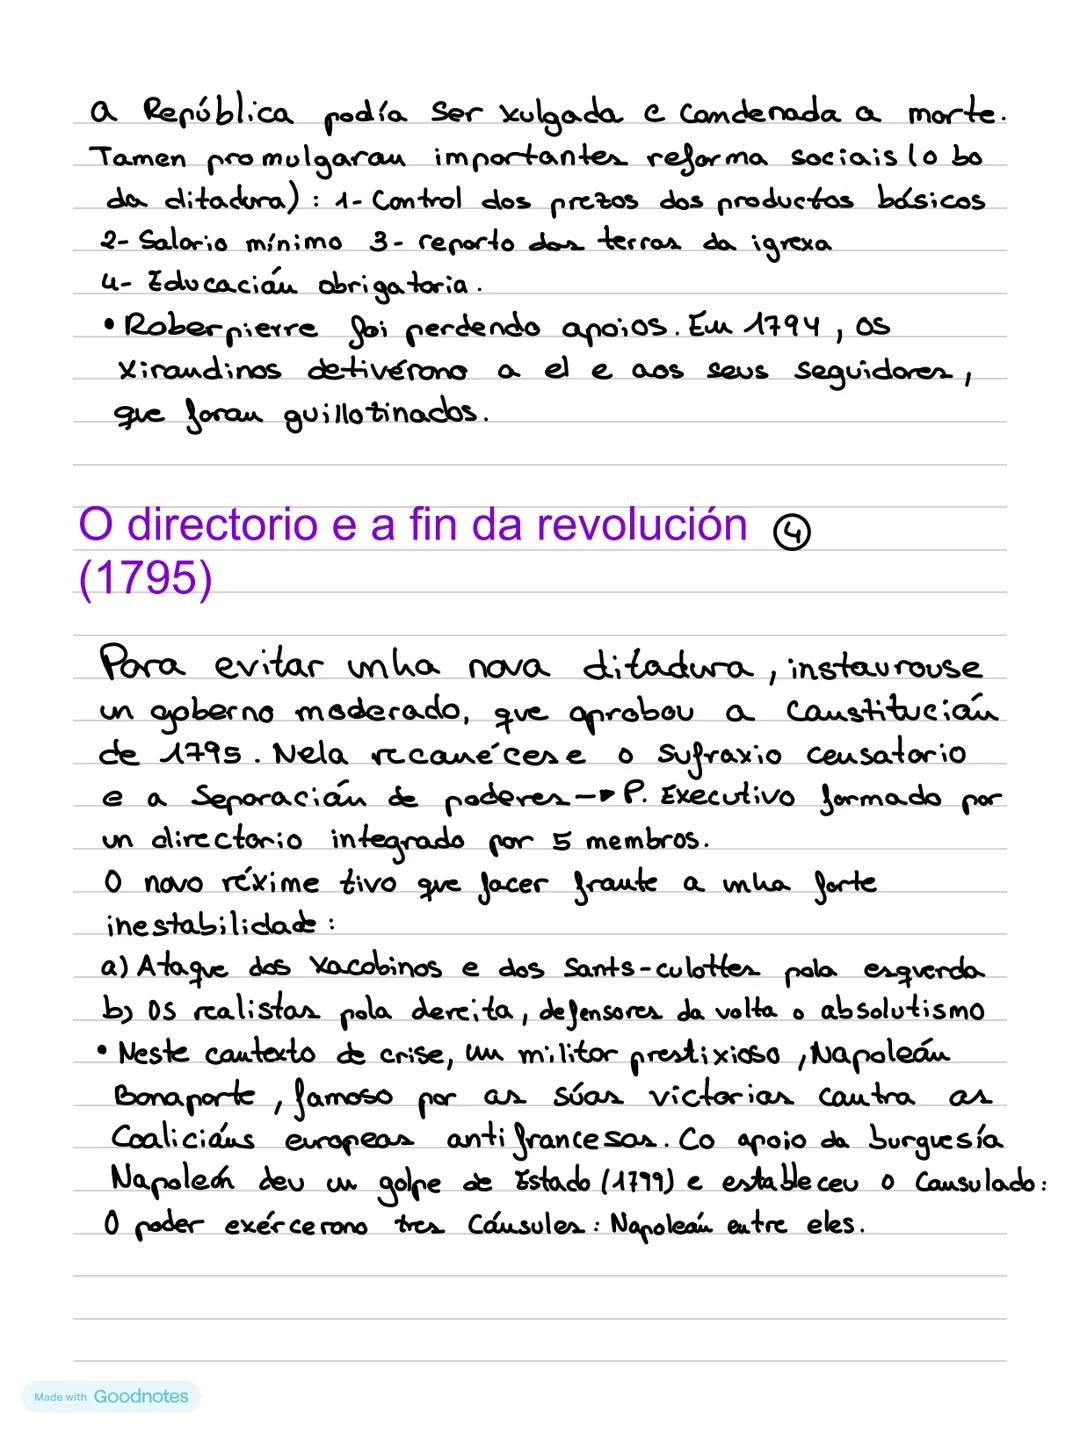 a República podía ser xulgada e condenada a morte.
Tamen promulgaran importantes reforma sociais (o bo
da ditadura) : 1- Control dos prezos dos productos básicos
2- Salario mínimo 3- reparto das terras da igrexa
4- Educación obrigatoria.
• Roberpierre foi perdendo apoios. En 1794, os
xirondinos detivérono a el e aos seus seguidores,
que foron guillotinados.
O directorio e a fin da revolución 4
(1795)
Para evitar unha nova ditadura, instaurouse
un goberno moderado, que aprobou a Constitución
de 1795. Nela reconécese o sufraxio censatorio
e a Separación de poderes → P. Executivo formado por
un directorio integrado por 5 membros.
O novo réxime tivo que facer fronte a unha forte
inestabilidade :
a) Ataque dos Xacobinos e dos Sants-culottes pola esquerda
b) Os realistas pola dereita, defensores da volta o absolutismo
• Neste contexto de crise, un militar prestixioso, Napoleón
Bonaparte, famoso por as súas victorias contra as
Coalicións europeas antifrancesas. Co apoio da burguesía
Napoleón deu un golpe de Estado (1799) e estableceu o Consulado:
O poder exércerono tres Cónsules : Napoleón entre eles.
Made with Goodnotes